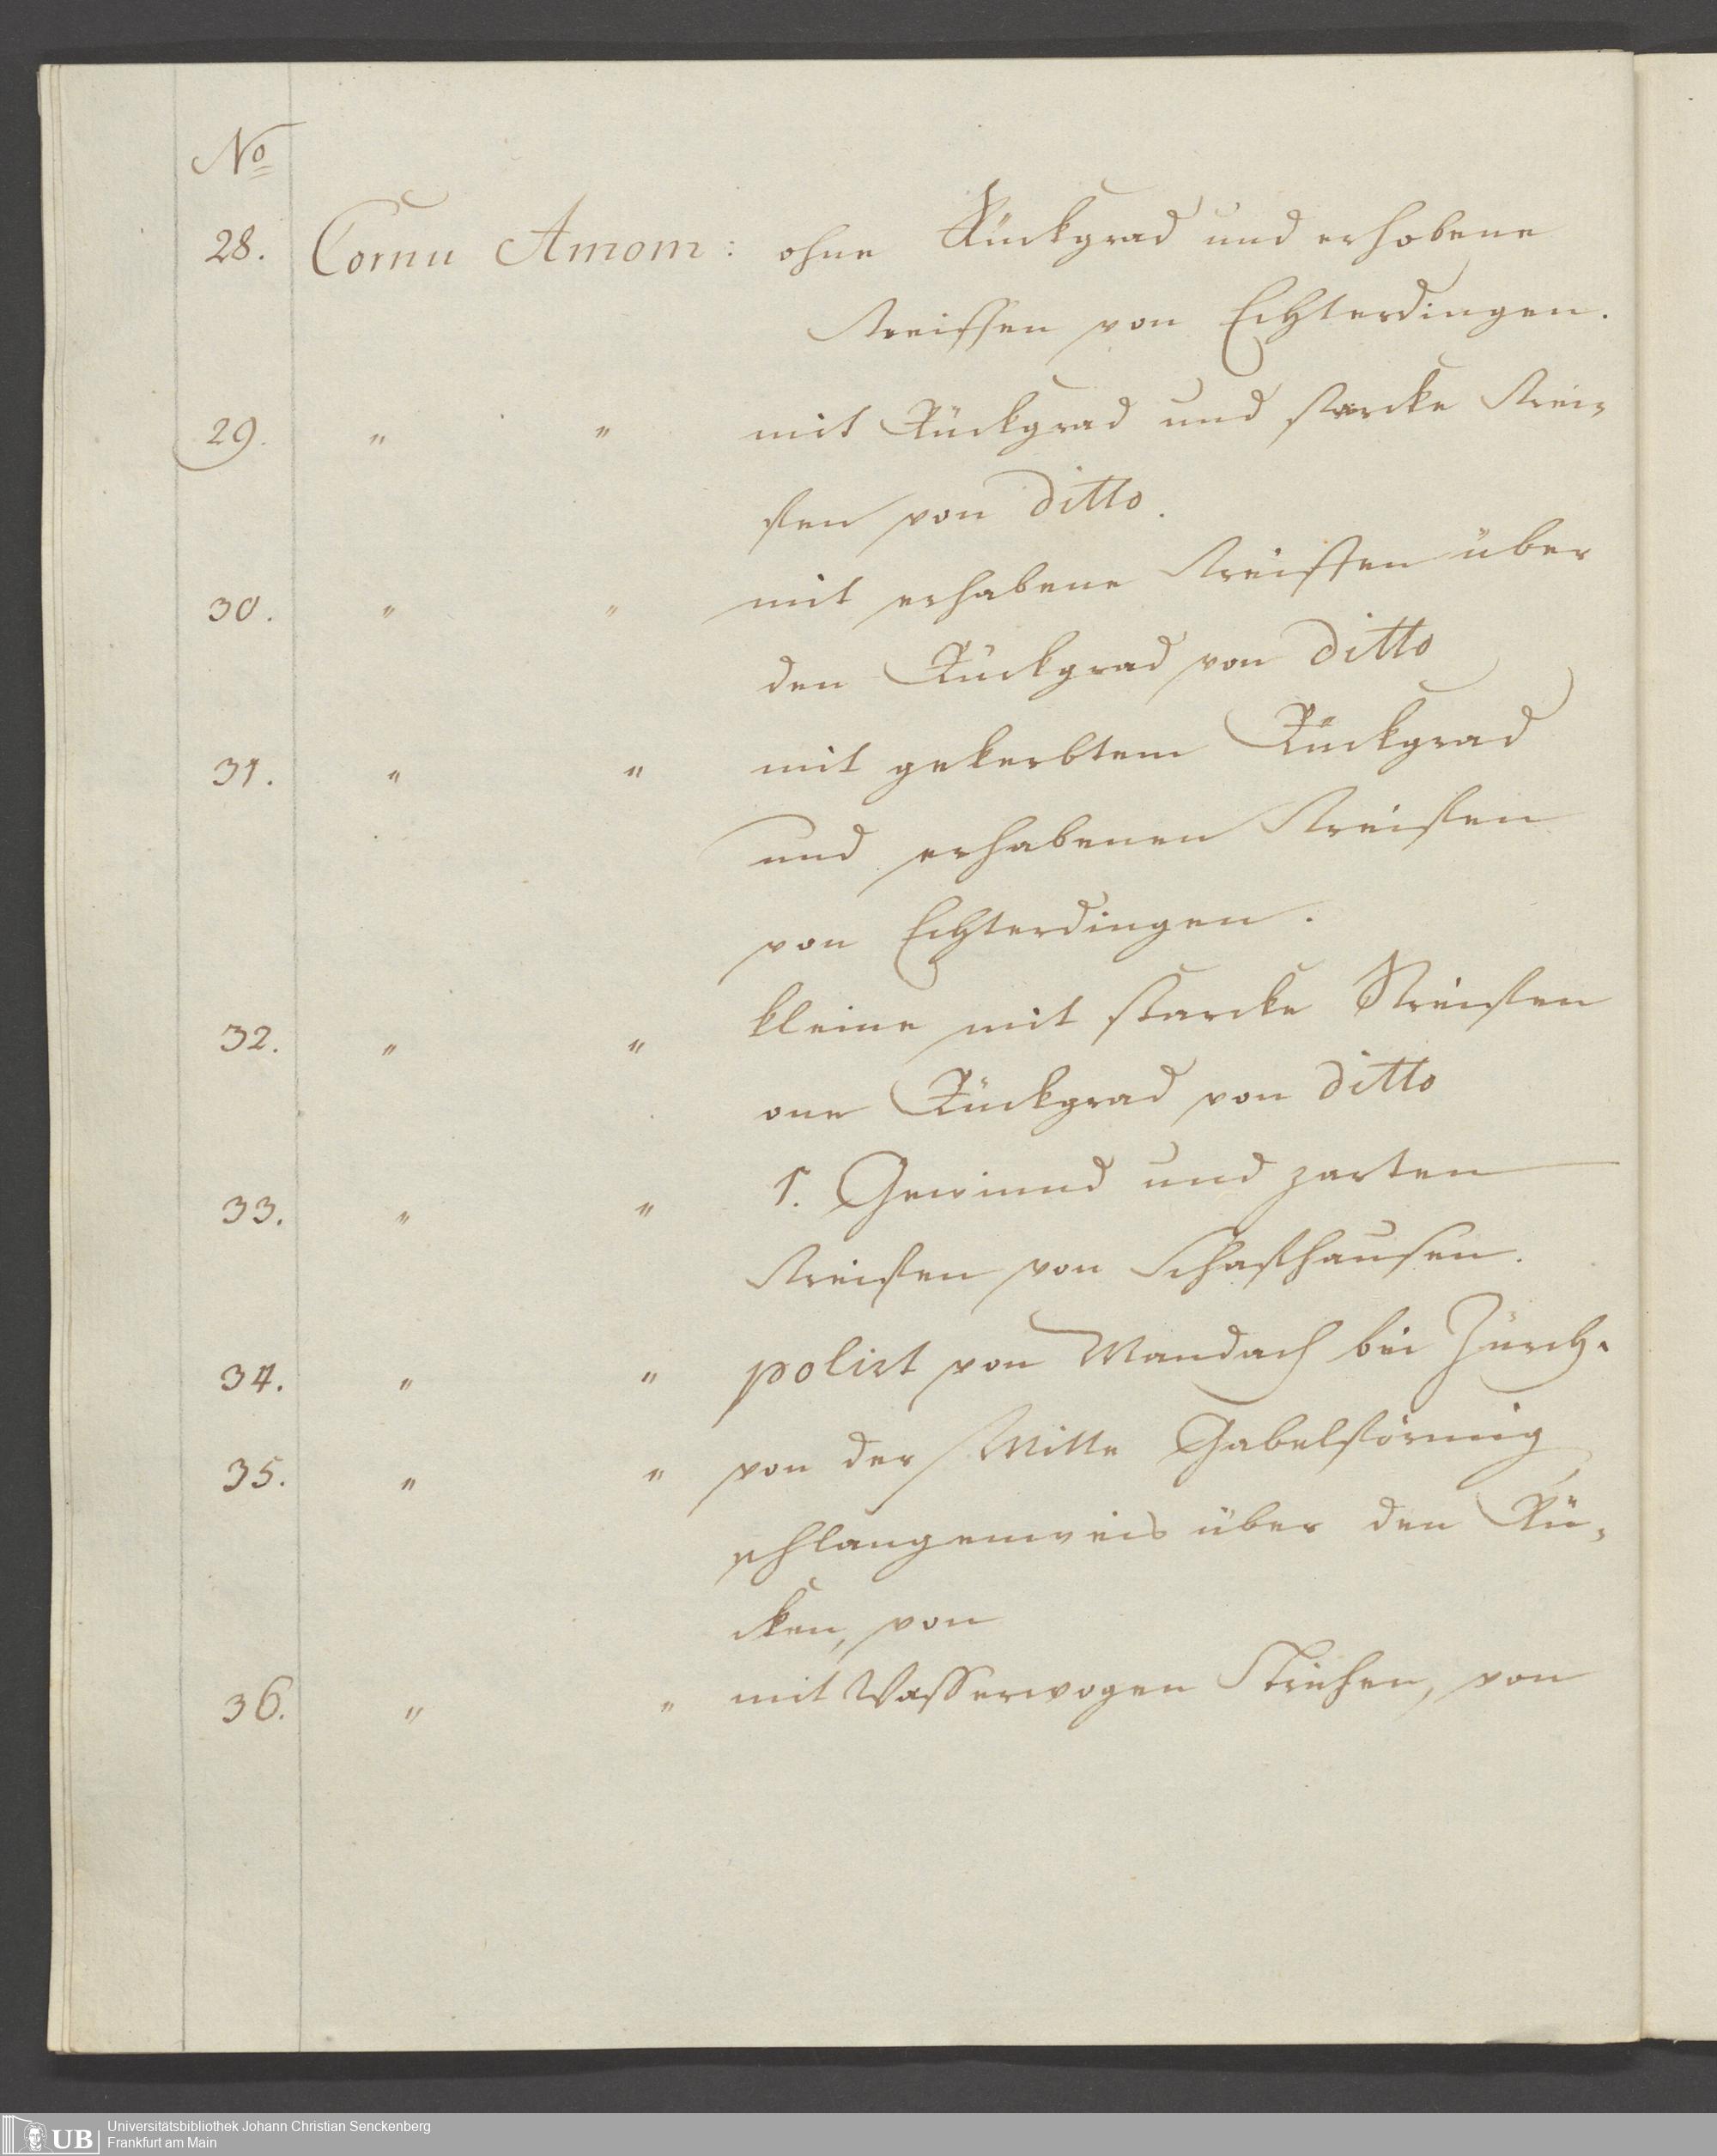 No
28. Cornu Amom: ohne Rückgrad und erhobene
Streiffen von Echterdingen.
29. " " mit Rückgrad und starcke Strei-
fen von ditto.
30. " " mit erhabene Streiffen über
den Rückgrad von ditto
31. " " mit gekerbtem Rückgrad
und erhabenen Streifen
von Echterdingen.
32. " " kleine mit starcke Streifen
one Rückgrad von ditto
33. " " 1. Gewinnd und zarten
Streifen von Schafhausen.
34. " " polirt von Mandach bei Zürch.
35. " " von der Mitte Gabelförmig
schlangenweis über den Rü-
cken, von
36. " " mit Wasserwogen Strichen, von
UB Universitätsbibliothek Johann Christian Senckenberg
Frankfurt am Main